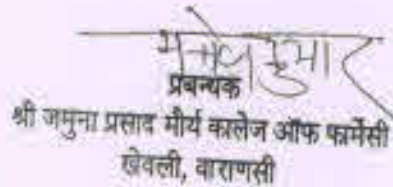 मनोज कुमार
प्रबन्धक
श्री जमुना प्रसाद मौर्य कालेज ऑफ फार्मेसी
खेवली, वाराणसी